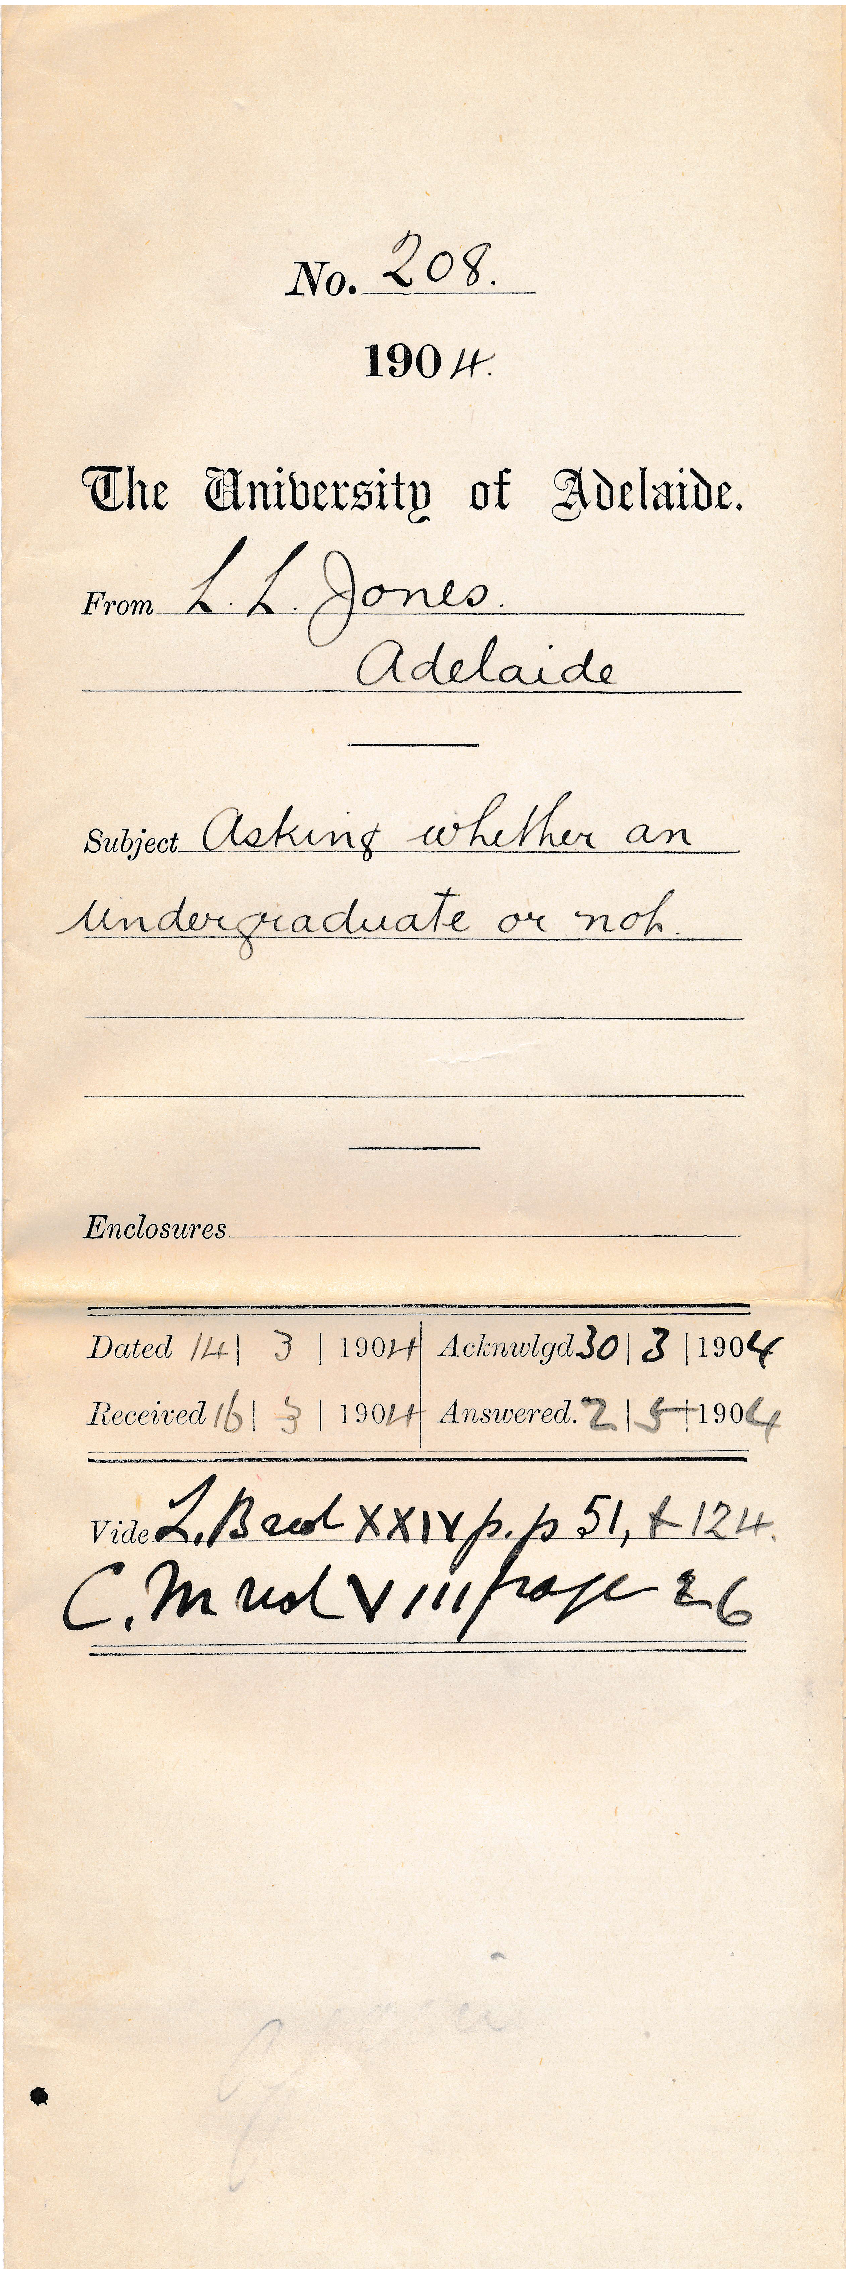 No. 208.
1904.
The University of Adelaide.
From L. L. Jones.
Adelaide
Subject Asking whether an
undergraduate or not.
Enclosures
Dated 14 | 3 | 1904 Acknwlgd 30 | 3 | 1904
Received 16 | 3 | 1904 Answered. 2 | 5 | 1904
Vide L. B red XXIV p. p 51, & 124.
C. M red VIII page 26